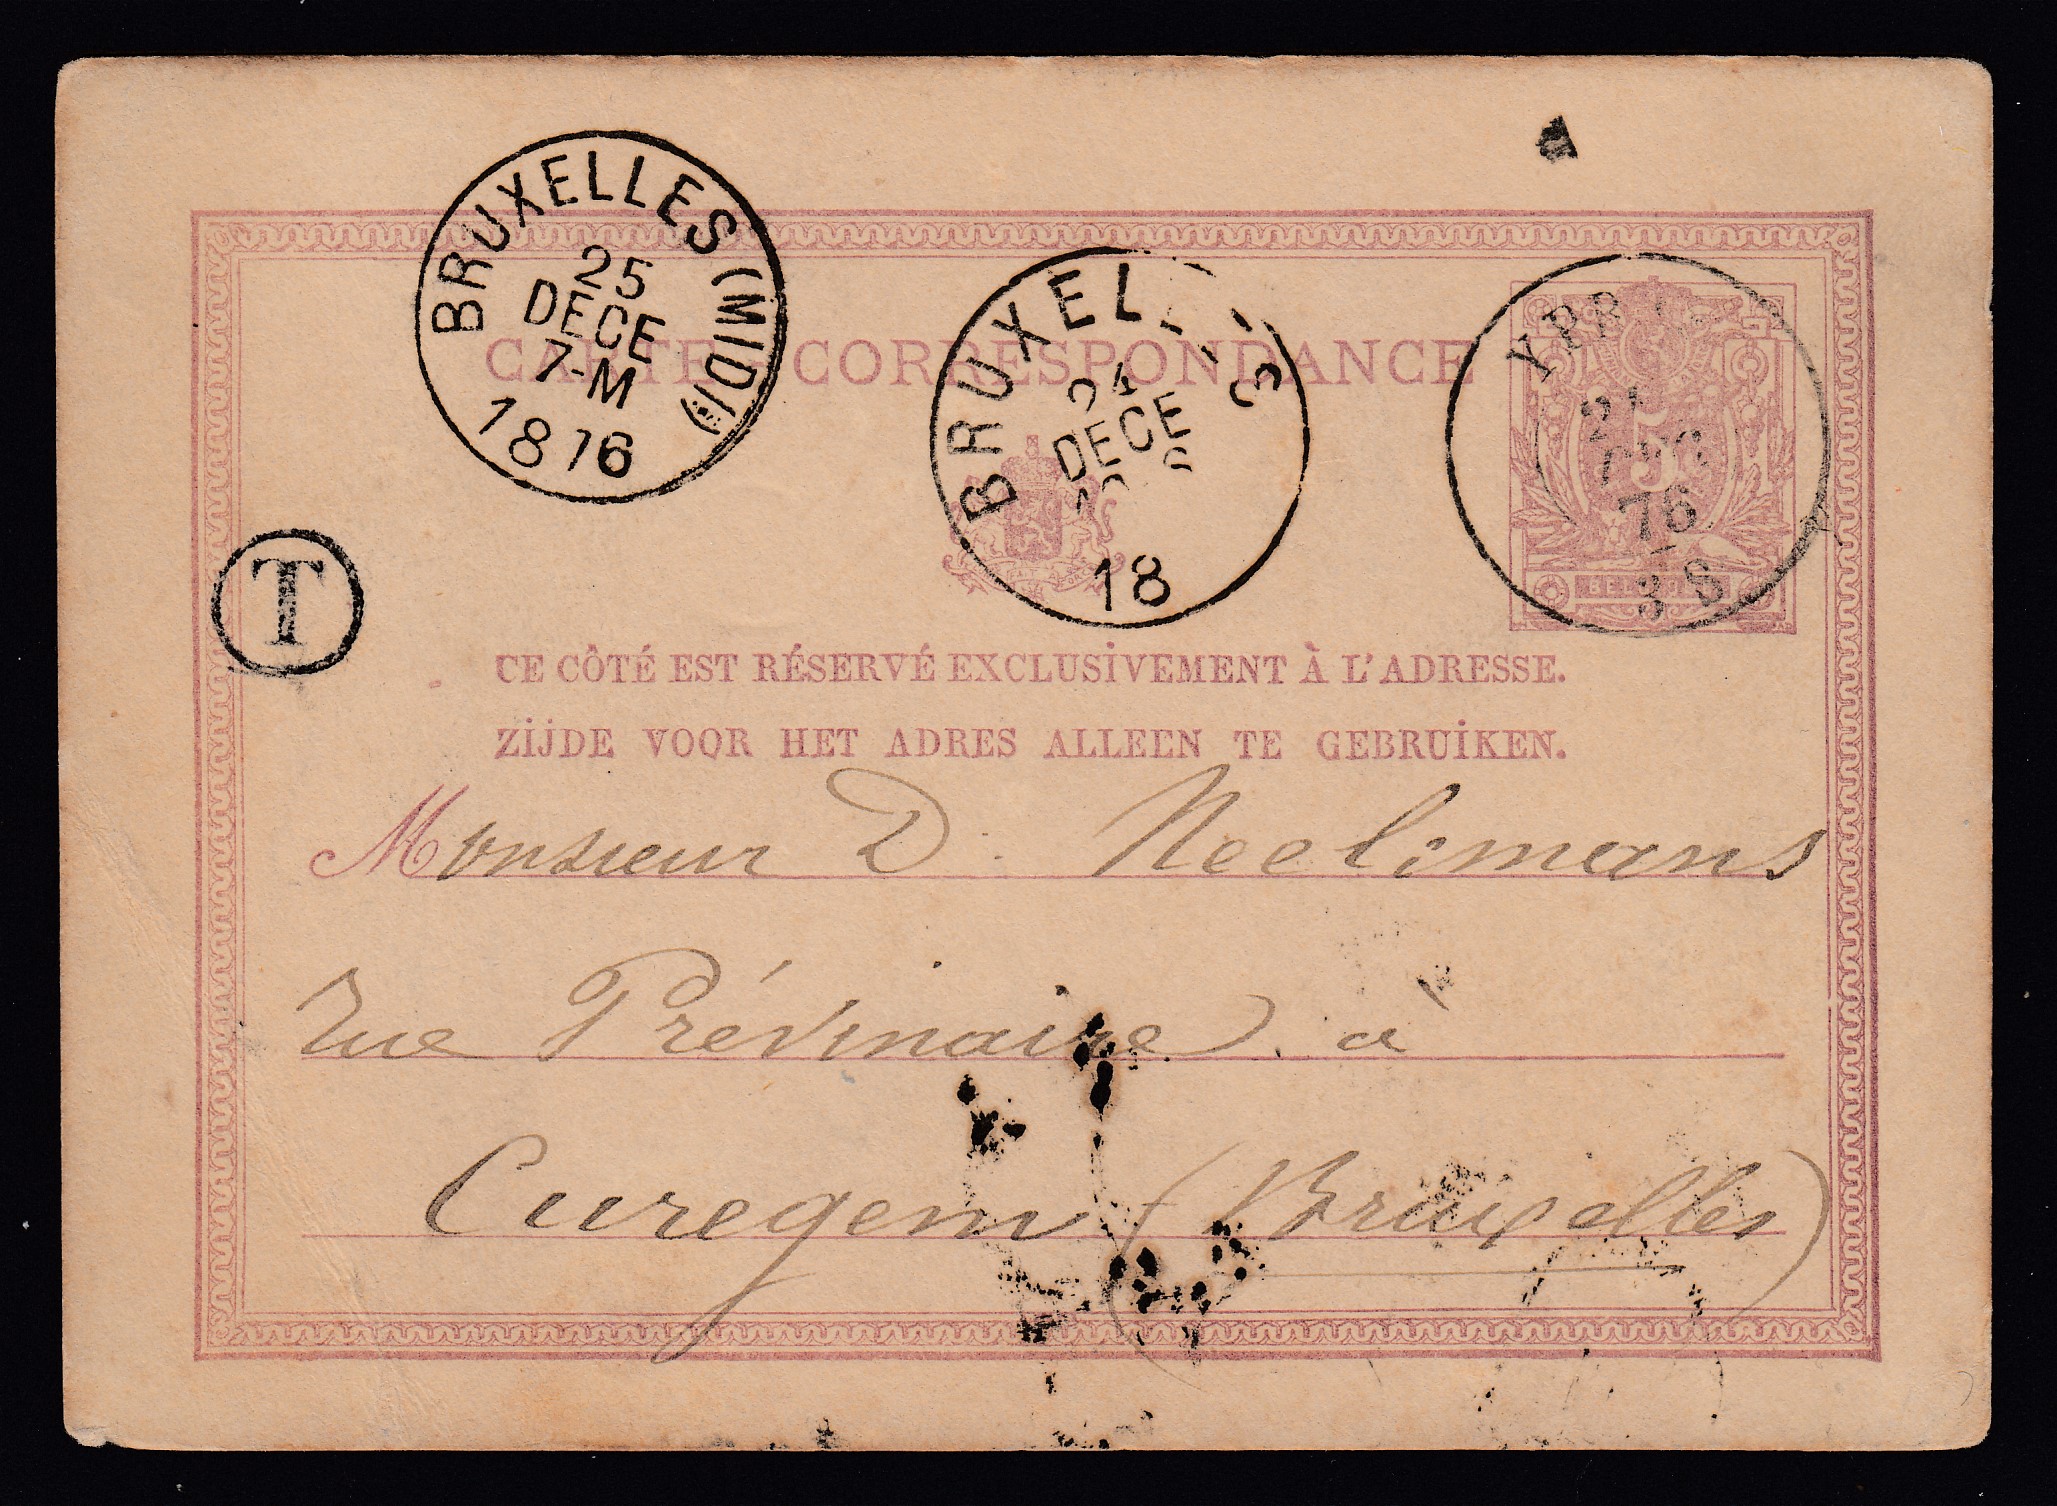 BRUXELLES (MIDI)
25
DECE
7-M
1876
BRUXEL
24
DECE
18
3
YPR
DEC
76
3 S
CARTE CORRESPONDANCE
5
T
CE CÔTÉ EST RÉSERVÉ EXCLUSIVEMENT À L'ADRESSE.
ZIJDE VOOR HET ADRES ALLEEN TE GEBRUIKEN.
Monsieur D. Neelimans
rue Prévinaire à
Cureghem (Bruxelles)